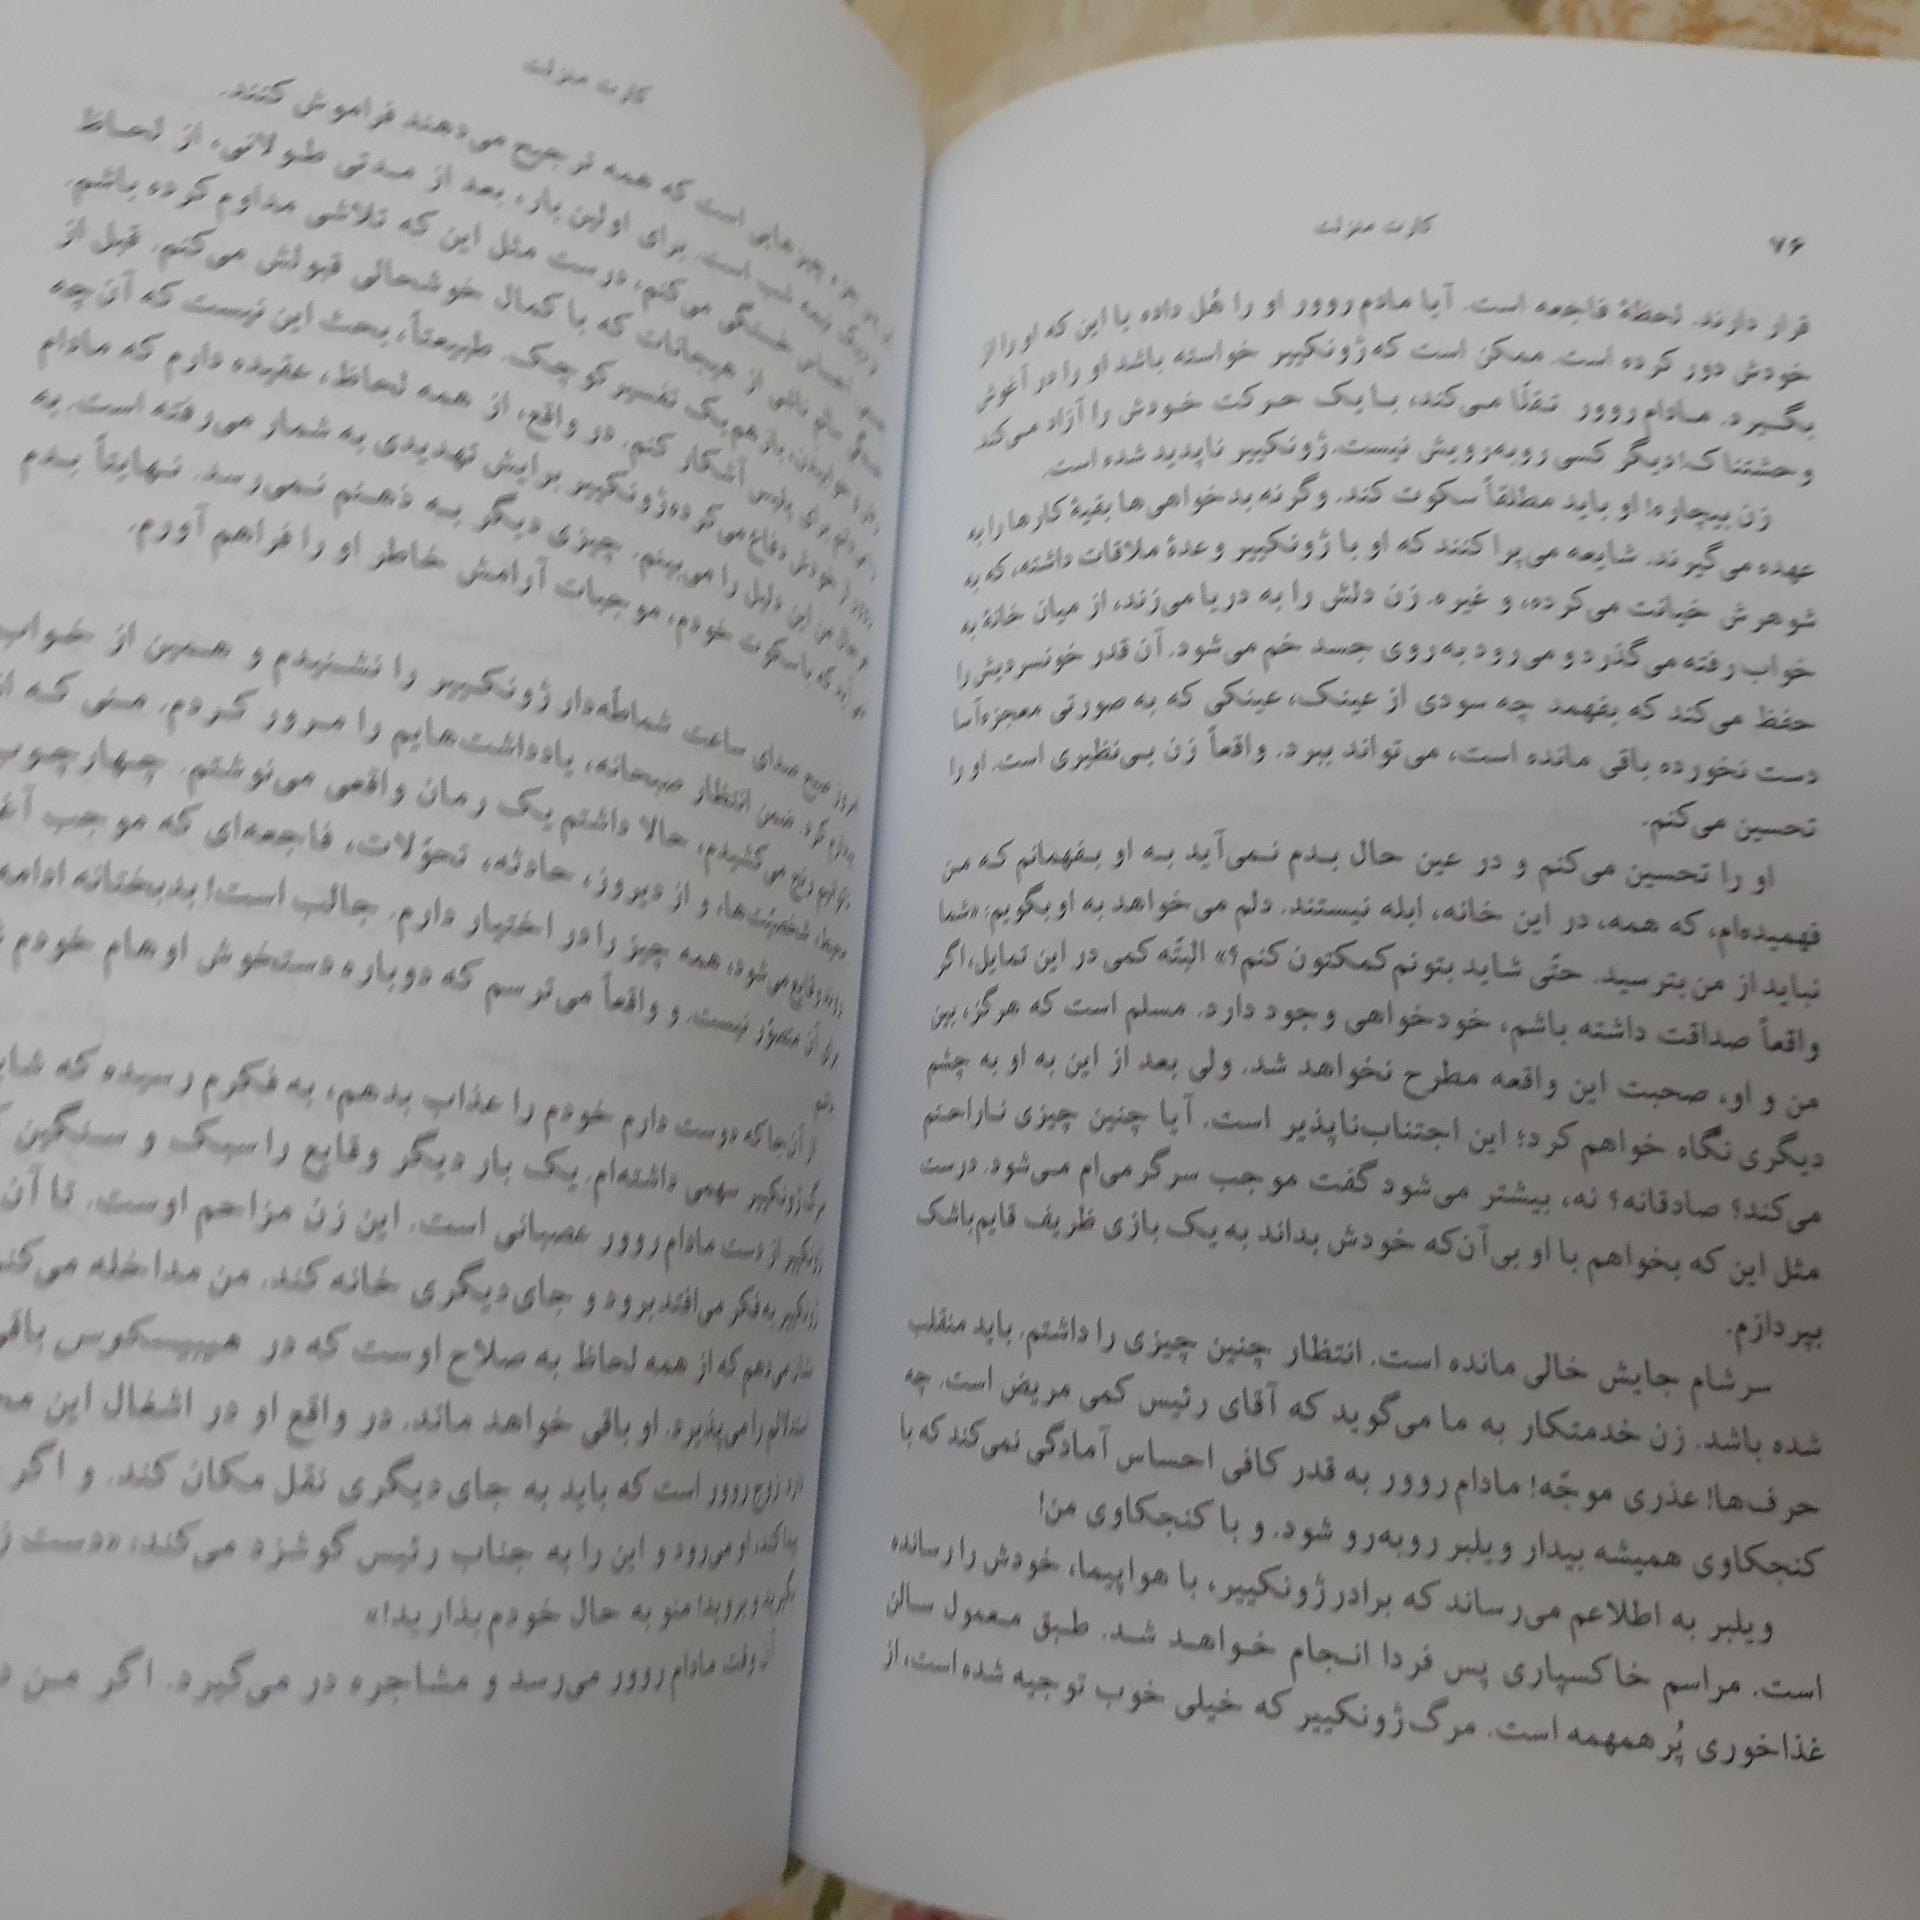 ۷۶
کارت منزلت
قرار دارند. لحظهٔ فاجعه است. آیا مادم روور او را هُل داده یا این که او را از
خودش دور کرده است. ممکن است که ژونکییر خواسته باشد او را در آغوش
بگیرد. مادام روور تقلّا می‌کند، با یک حرکت خودش را آزاد می‌کند
وحشتناک! دیگر کسی روبه‌رویش نیست. ژونکییر ناپدید شده است.
زن بیچاره! او باید مطلقاً سکوت کند. وگرنه بدخواهی‌ها بقیهٔ کارها را به
عهده می‌گیرند. شایعه می‌پراکنند که او با ژونکییر وعدهٔ ملاقات داشته، که به
شوهرش خیانت می‌کرده، و غیره. زن دلش را به دریا می‌زند، از میان خانهٔ به
خواب رفته می‌گذرد و می‌رود به‌روی جسد خم می‌شود. آن قدر خونسردیش را
حفظ می‌کند که بفهمد چه سودی از عینک، عینکی که به صورتی معجزه‌آسا
دست نخورده باقی مانده است، می‌تواند ببرد. واقعاً زن بی‌نظیری است. او را
تحسین می‌کنم.
او را تحسین می‌کنم و در عین حال بدم نمی‌آید به او بفهمانم که من
فهمیده‌ام، که همه، در این خانه، ابله نیستند. دلم می‌خواهد به او بگویم: «شما
نباید از من بترسید. حتّی شاید بتونم کمکتون کنم؟» البتّه کمی در این تمایل، اگر
واقعاً صداقت داشته باشم، خودخواهی وجود دارد. مسلم است که هرگز، بین
من و او، صحبت این واقعه مطرح نخواهد شد. ولی بعد از این به او به چشم
دیگری نگاه خواهم کرد؛ این اجتناب‌ناپذیر است. آیا چنین چیزی ناراحتم
می‌کند؟ صادقانه؟ نه، بیشتر می‌شود گفت موجب سرگرمی‌ام می‌شود. درست
مثل این که بخواهم با او بی‌آن‌که خودش بداند به یک بازی ظریف قایم‌باشک
بپردازم.
سر شام جایش خالی مانده است. انتظار چنین چیزی را داشتم. باید منقلب
شده باشد. زن خدمتکار به ما می‌گوید که آقای رئیس کمی مریض است. چه
حرف‌ها! عذری موجّه! مادام روور به قدر کافی احساس آمادگی نمی‌کند که با
کنجکاوی همیشه بیدار ویلبر روبه‌رو شود. و با کنجکاوی من!
ویلبر به اطلاعم می‌رساند که برادر ژونکییر، با هواپیما، خودش را رسانده
است. مراسم خاکسپاری پس فردا انجام خواهد شد. طبق معمول سالن
غذاخوری پُر همهمه است. مرگ ژونکییر که خیلی خوب توجیه شده است، از
کارت منزلت
چیزهایی است که همه ترجیح می‌دهند فراموش کنند.
نیمه شب است. برای اولین بار، بعد از مدتی طولانی، از لحاظ
احساس خستگی می‌کنم، درست مثل این که تلاشی مداوم کرده باشم.
ناشی از هیجانات که با کمال خوشحالی قبولش می‌کنم. قبل از
باز هم یک تفسیر کوچک. طبیعتاً، بحث این نیست که آن‌چه
برای پلیس آشکار کنم. در واقع، از همه لحاظ، عقیده دارم که مادام
از خودش دفاع می‌کرده. ژونکییر برایش تهدیدی به شمار می‌رفته است. به
من این دلیل را می‌بینم. چیزی دیگر به ذهنم نمی‌رسد. نهایتاً بدم
که با سکوت خودم، موجبات آرامش خاطر او را فراهم آورم.
امروز صبح صدای ساعت شماطه‌دار ژونکییر را نشنیدم و همین از خواب
کرد. ضمن انتظار صبحانه، یادداشت‌هایم را مرور کردم. منی که از
رنج می‌کشیدم، حالا داشتم یک رمان واقعی می‌نوشتم. چهارچوب
محیط، شخصیّت‌ها، و از دیروز، حادثه، تحوّلات، فاجعه‌ای که موجب
وقایع می‌شود، همه چیز را در اختیار دارم. جالب است! بدبختانه ادامه
آن متصوّر نیست. و واقعاً می‌ترسم که دوباره دستخوش اوهام خودم
از آن‌جا که دوست دارم خودم را عذاب بدهم، به فکرم رسیده که
مرگ ژونکییر سهمی داشته‌ام. یک بار دیگر وقایع را سبک و سنگین
ژونکییر از دست مادام روور عصبانی است. این زن مزاحم اوست. تا آن
ژونکییر به فکر می‌افتد برود و جای دیگری خانه کند. من مداخله می‌کنم
که از همه لحاظ به صلاح اوست که در هیبیسکوس
را می‌پذیرد. او باقی خواهد ماند. در واقع او در اشغال این
زوج روور است که باید به جای دیگری نقل مکان کند. و اگر
پیدا کند، او می‌رود و این را به جناب رئیس گوشزد می‌کند، «دست
بگیرید و بروید! منو به حال خودم بذارید!»
آن وقت مادام روور می‌رسد و مشاجره در می‌گیرد. اگر من